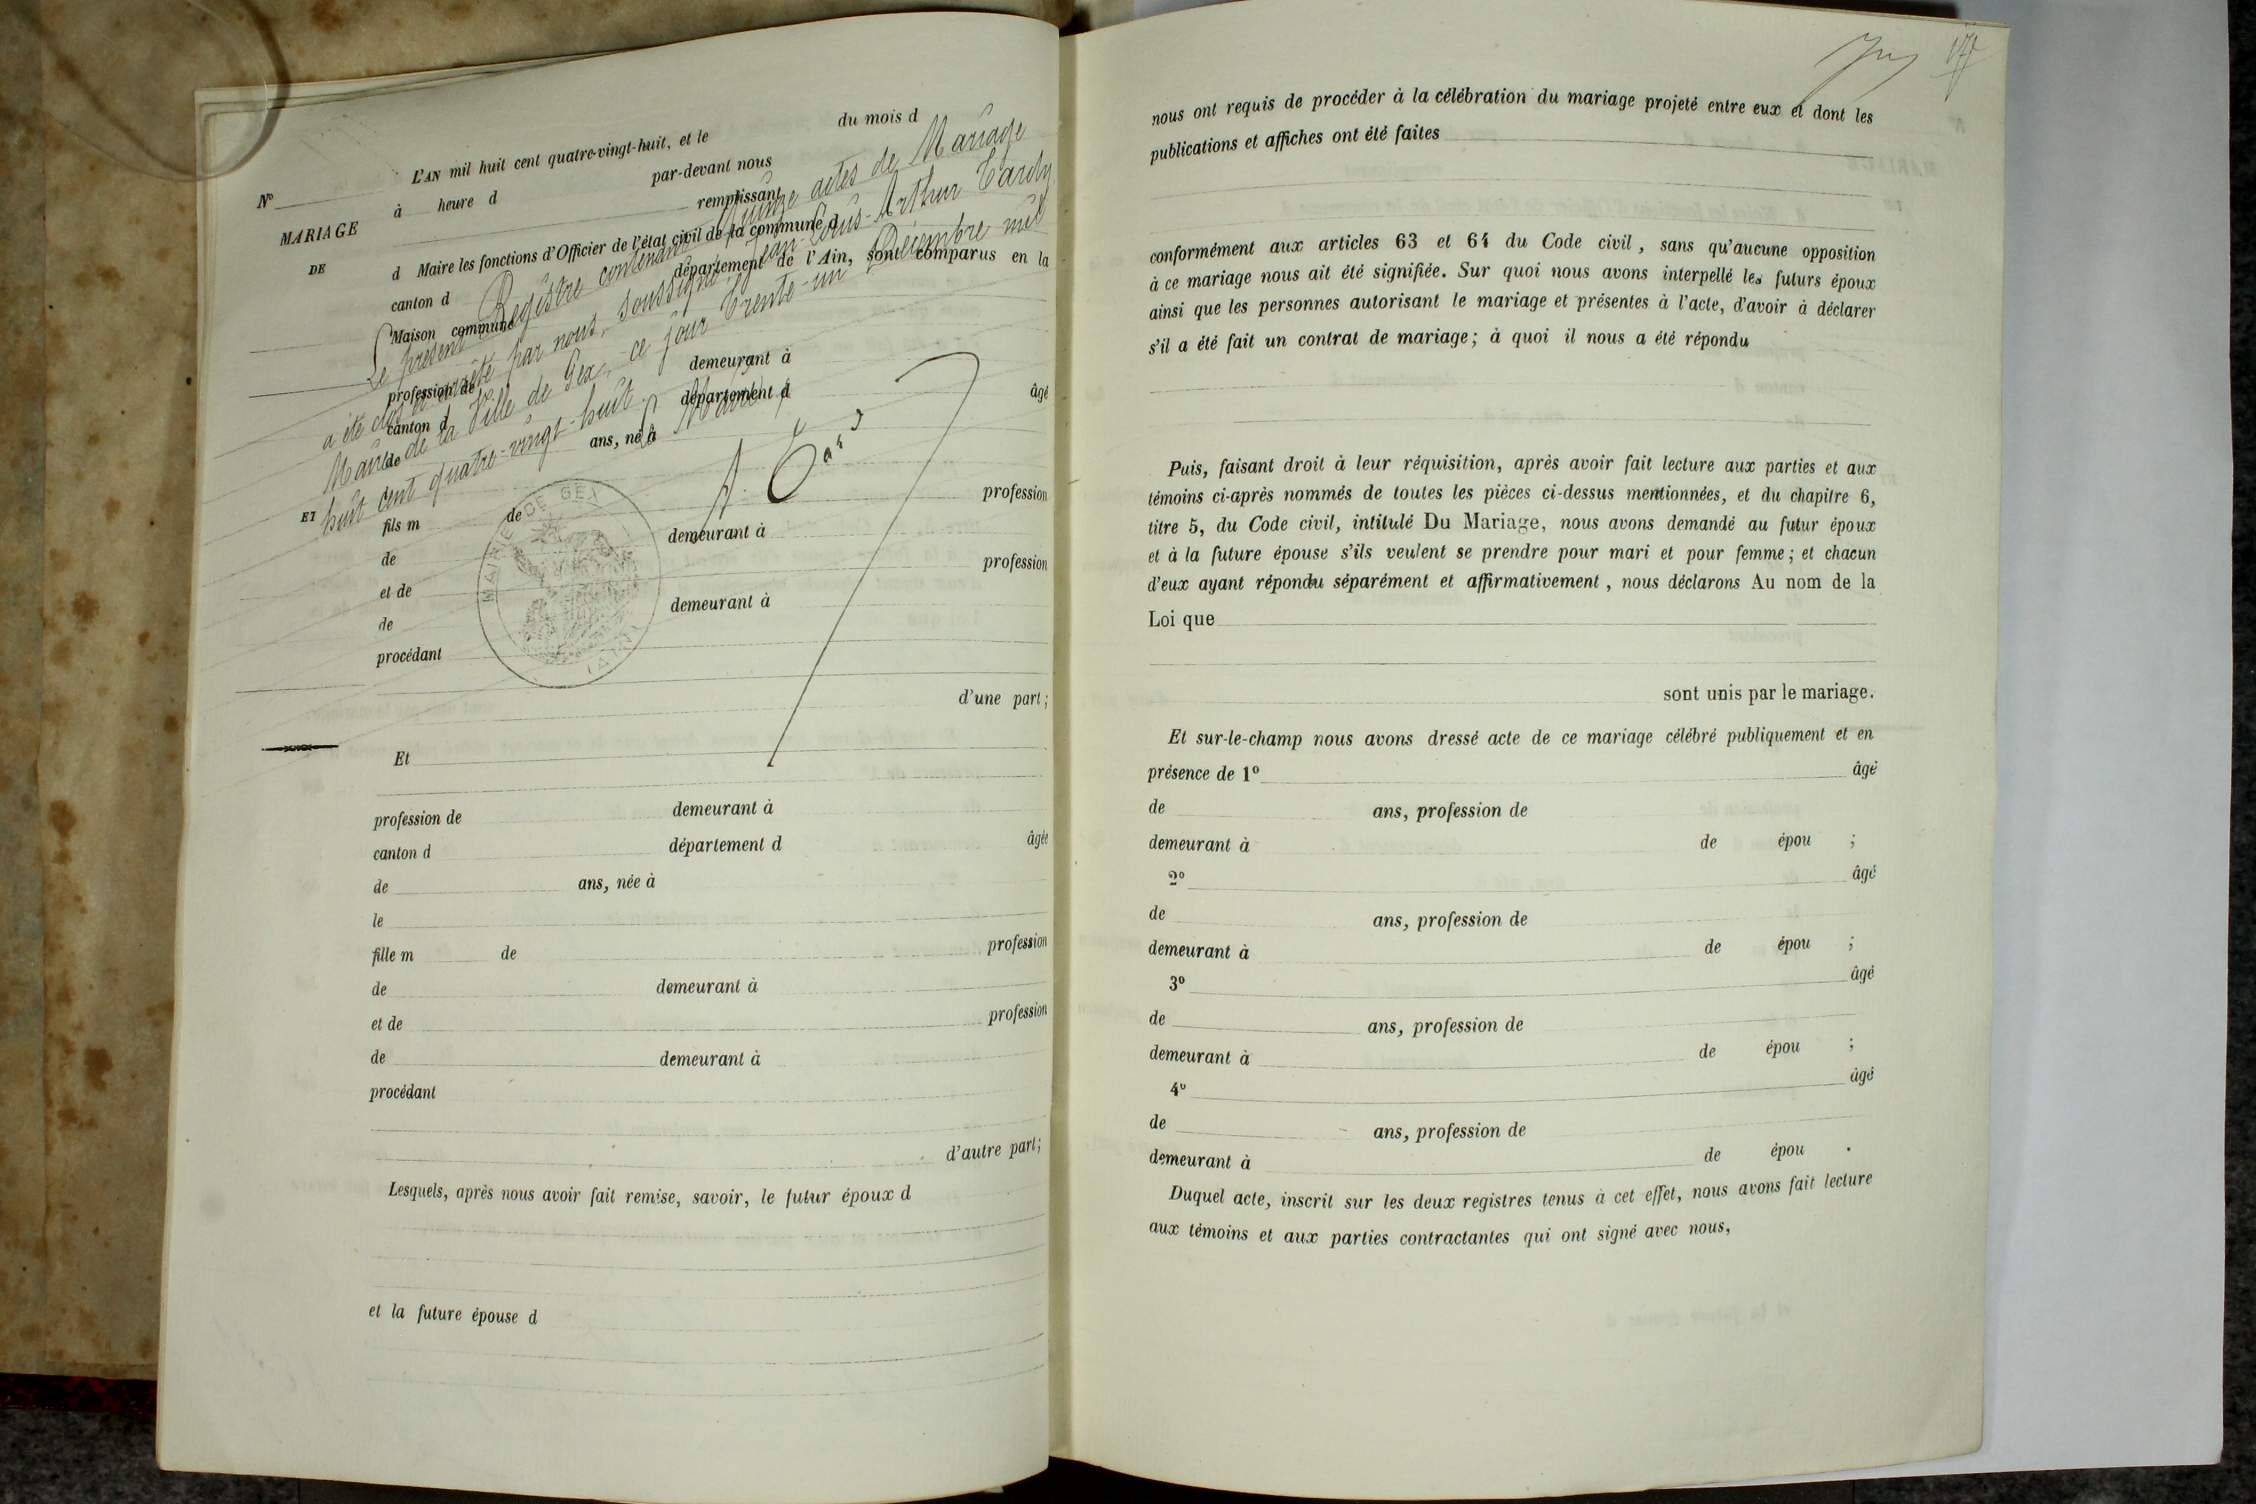 L'AN mil huit cent quatre-vingt-huit, et le du mois d
N° à heure d par-devant nous
MARIAGE remplissant
DE
d Maire les fonctions d'Officier de l'état civil de la commune d
canton d département de l'Ain, sont comparus en la
Maison commune
Le présent Registre contenant quinze actes de Mariage
a été clos et arrêté par nous, soussigné, Jean-Louis-Arthur Tardy
Maire de la Ville de Gex, ce jour trente-un Décembre mil
huit cent quatre-vingt-huit.
Le Maire,
profession de demeurant à
canton d département d âgé
de ans, né à
A. Tardy
MAIRIE DE GEX
(AIN)
profession
ET
fils m de
de demeurant à
et de profession
de demeurant à
procédant
d'une part;
Et
profession de demeurant à
canton d département d âgée
de ans, née à
le
fille m de profession
de demeurant à
et de profession
de demeurant à
procédant
d'autre part;
Lesquels, après nous avoir fait remise, savoir, le futur époux d
et la future épouse d
17
nous ont requis de procéder à la célébration du mariage projeté entre eux et dont les
publications et affiches ont été faites
conformément aux articles 63 et 64 du Code civil, sans qu'aucune opposition
à ce mariage nous ait été signifiée. Sur quoi nous avons interpellé les futurs époux
ainsi que les personnes autorisant le mariage et présentes à l'acte, d'avoir à déclarer
s'il a été fait un contrat de mariage; à quoi il nous a été répondu
Puis, faisant droit à leur réquisition, après avoir fait lecture aux parties et aux
témoins ci-après nommés de toutes les pièces ci-dessus mentionnées, et du chapitre 6,
titre 5, du Code civil, intitulé Du Mariage, nous avons demandé au futur époux
et à la future épouse s'ils veulent se prendre pour mari et pour femme; et chacun
d'eux ayant répondu séparément et affirmativement, nous déclarons Au nom de la
Loi que
sont unis par le mariage.
Et sur-le-champ nous avons dressé acte de ce mariage célébré publiquement et en
présence de 1° âgé
de ans, profession de
demeurant à de épou ;
2° âgé
de ans, profession de
demeurant à de épou ;
3° âgé
de ans, profession de
demeurant à de épou ;
4° âgé
de ans, profession de
demeurant à de épou .
Duquel acte, inscrit sur les deux registres tenus à cet effet, nous avons fait lecture
aux témoins et aux parties contractantes qui ont signé avec nous,